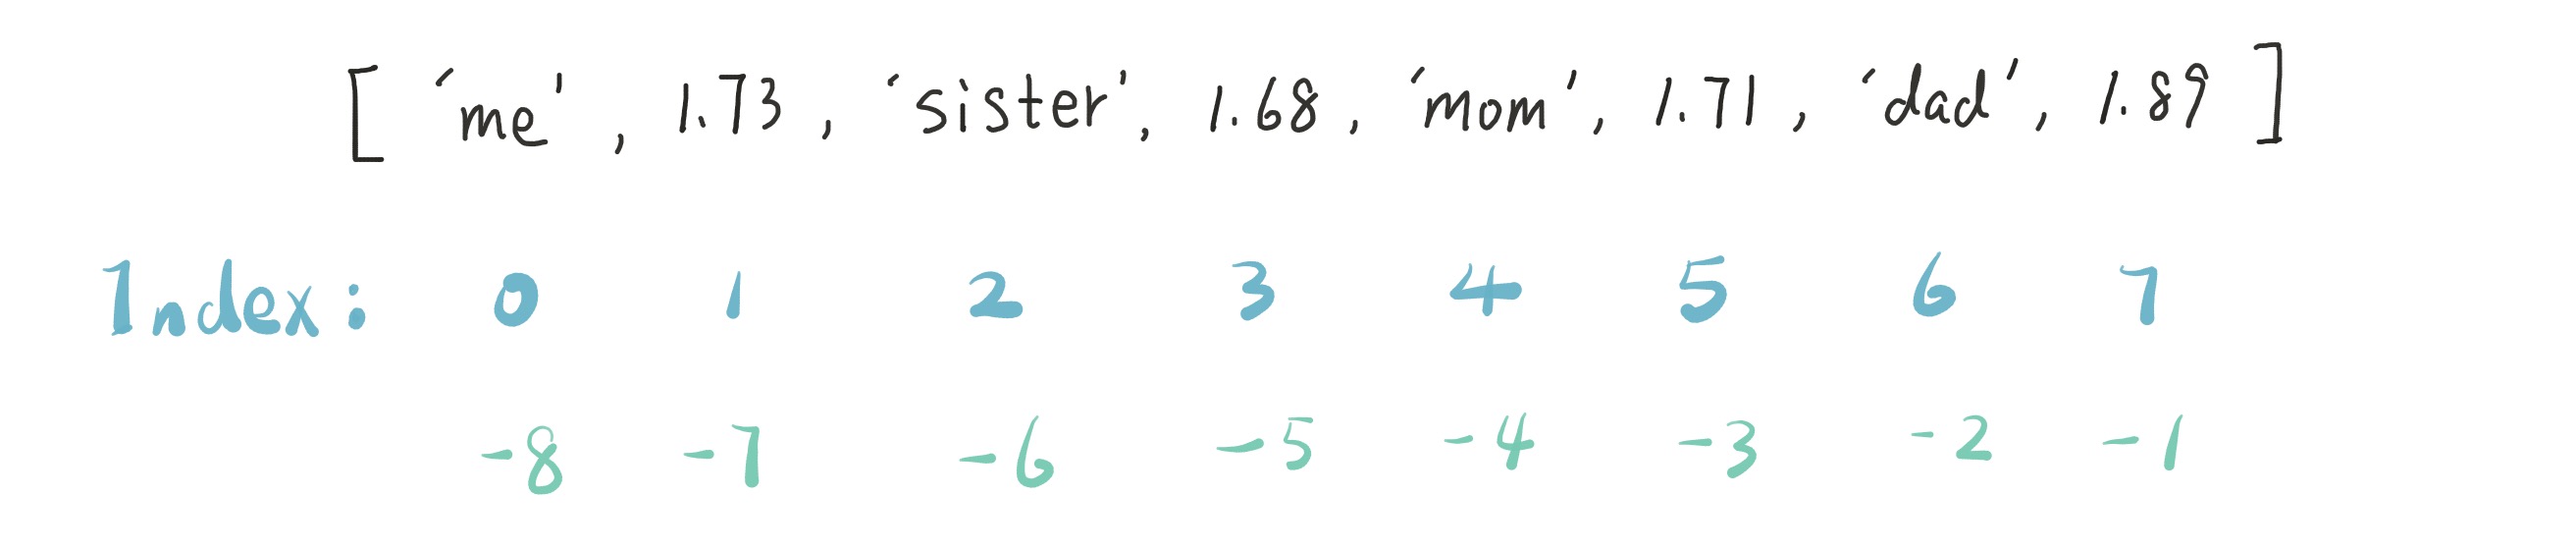 [ 'me', 1.73, 'sister', 1.68, 'mom', 1.71, 'dad', 1.89 ]
Index: 0 1 2 3 4 5 6 7
-8 -7 -6 -5 -4 -3 -2 -1